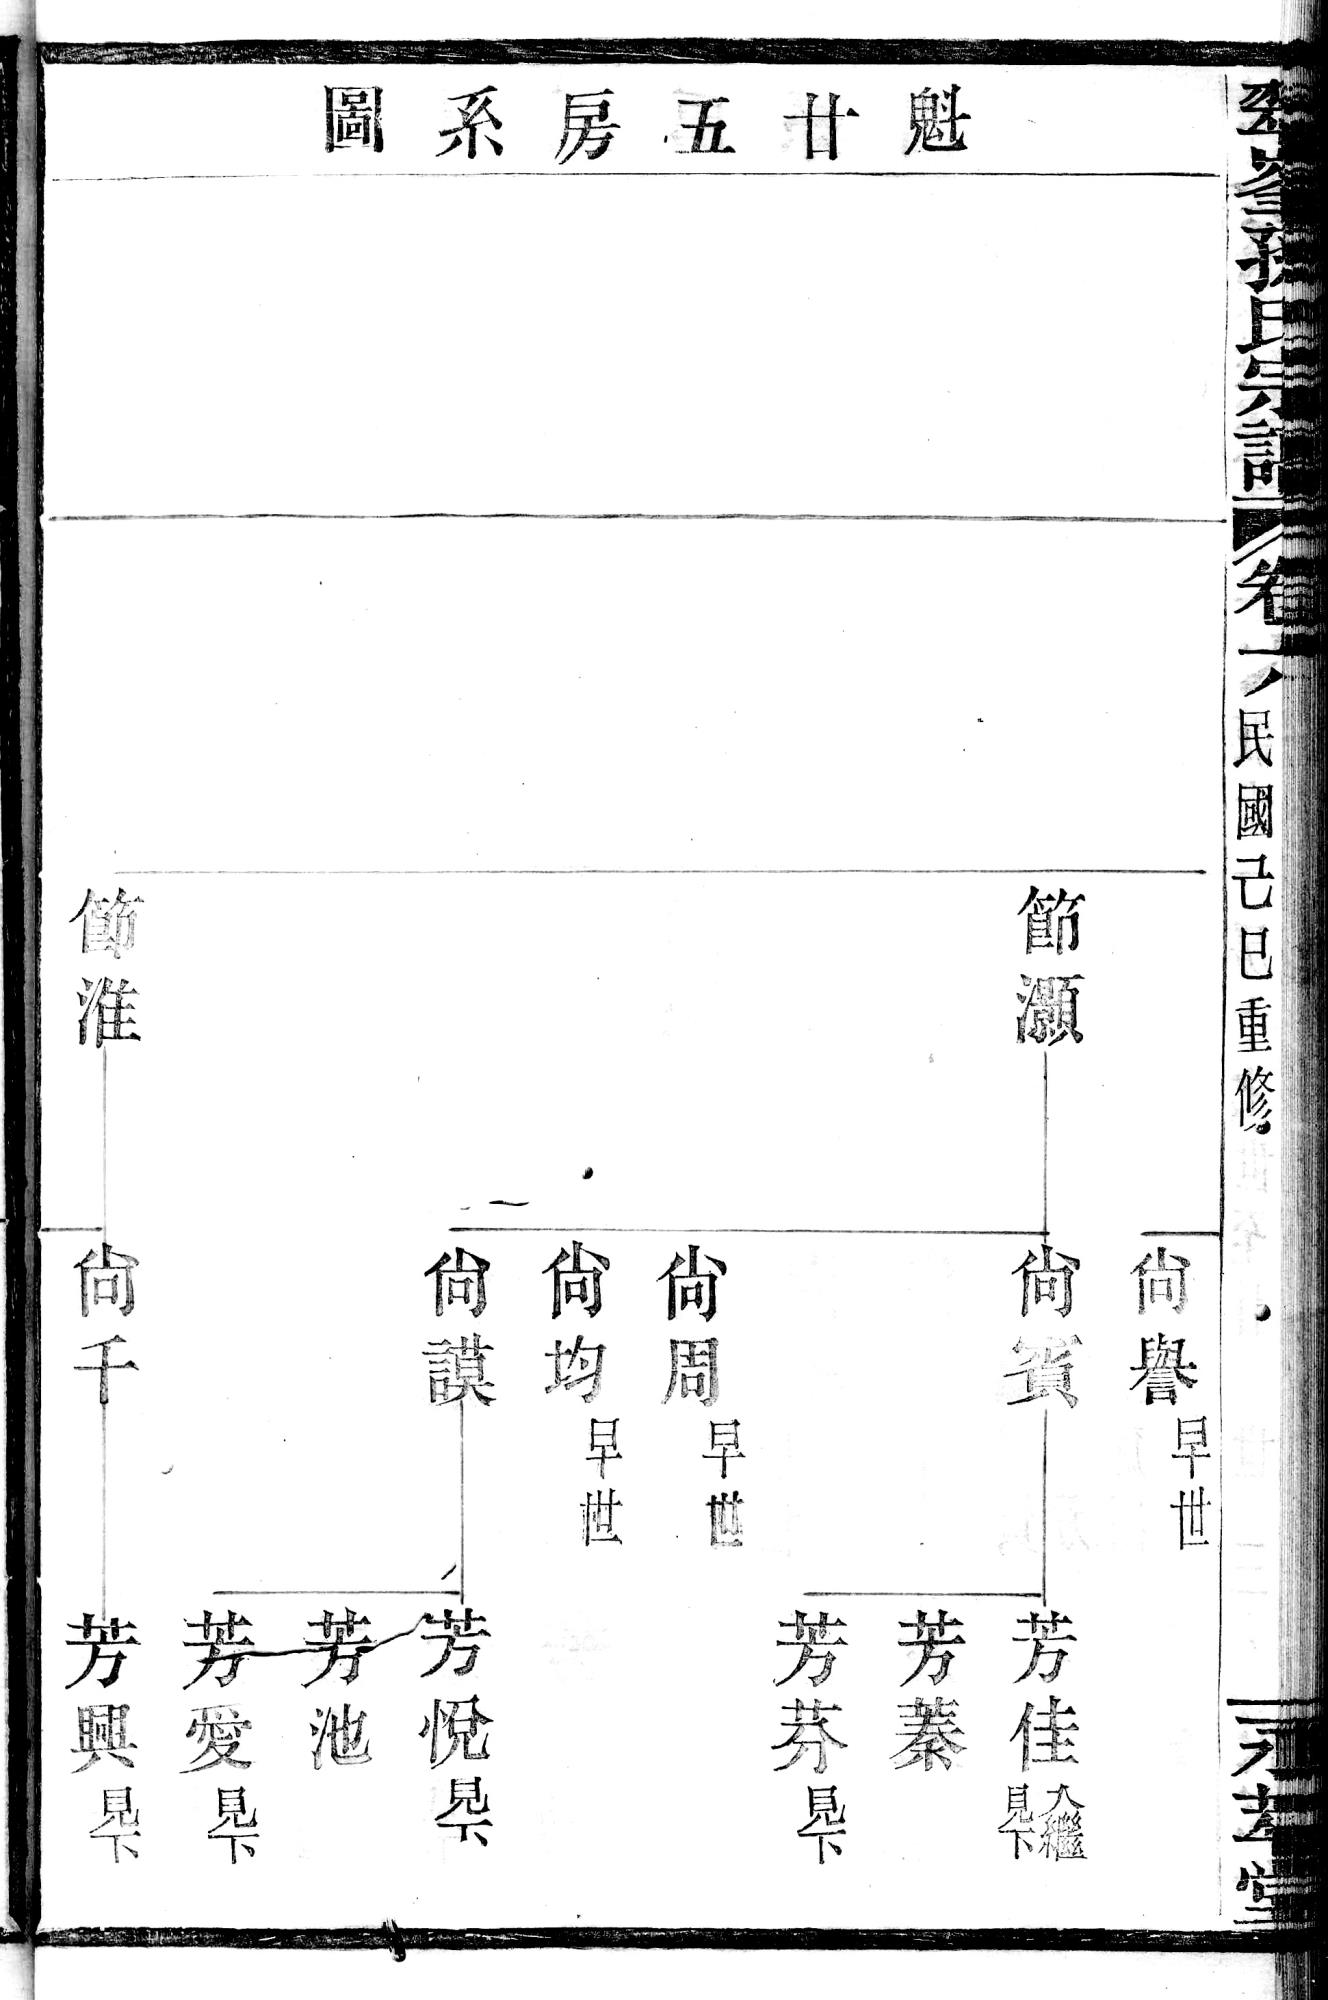 魁廿五房系圖
孫氏宗譜
卷六
民國己巳重修
堂
節灝
節淮
尙譽早世
尙賓
尙周早世
尙均早世
尙謨
尙千
芳佳入繼見下
芳蓁
芳芬見下
芳悅見下
芳池
芳愛見下
芳興見下